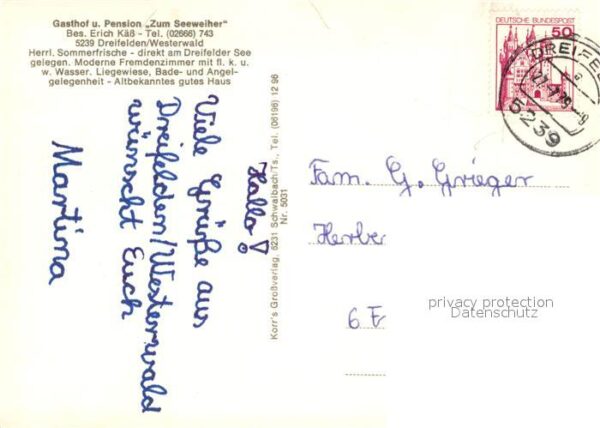 Gasthof u. Pension „Zum Seeweiher"
Bes. Erich Käß - Tel. (02666) 743
5239 Dreifelden/Westerwald
Herrl. Sommerfrische - direkt am Dreifelder See
gelegen. Moderne Fremdenzimmer mit fl. k. u.
w. Wasser. Liegewiese, Bade- und Angel-
gelegenheit - Altbekanntes gutes Haus
Hallo!
Viele Grüße aus
Dreifelden/Westerwald
wünscht Euch
Martina
Korr's Großverlag, 6231 Schwalbach/Ts., Tel. (06196) 12 96
Nr. 5031
DEUTSCHE BUNDESPOST
50
DREIFEL
5239
Fam. G. Grieger
Herber
6
privacy protection
Datenschutz